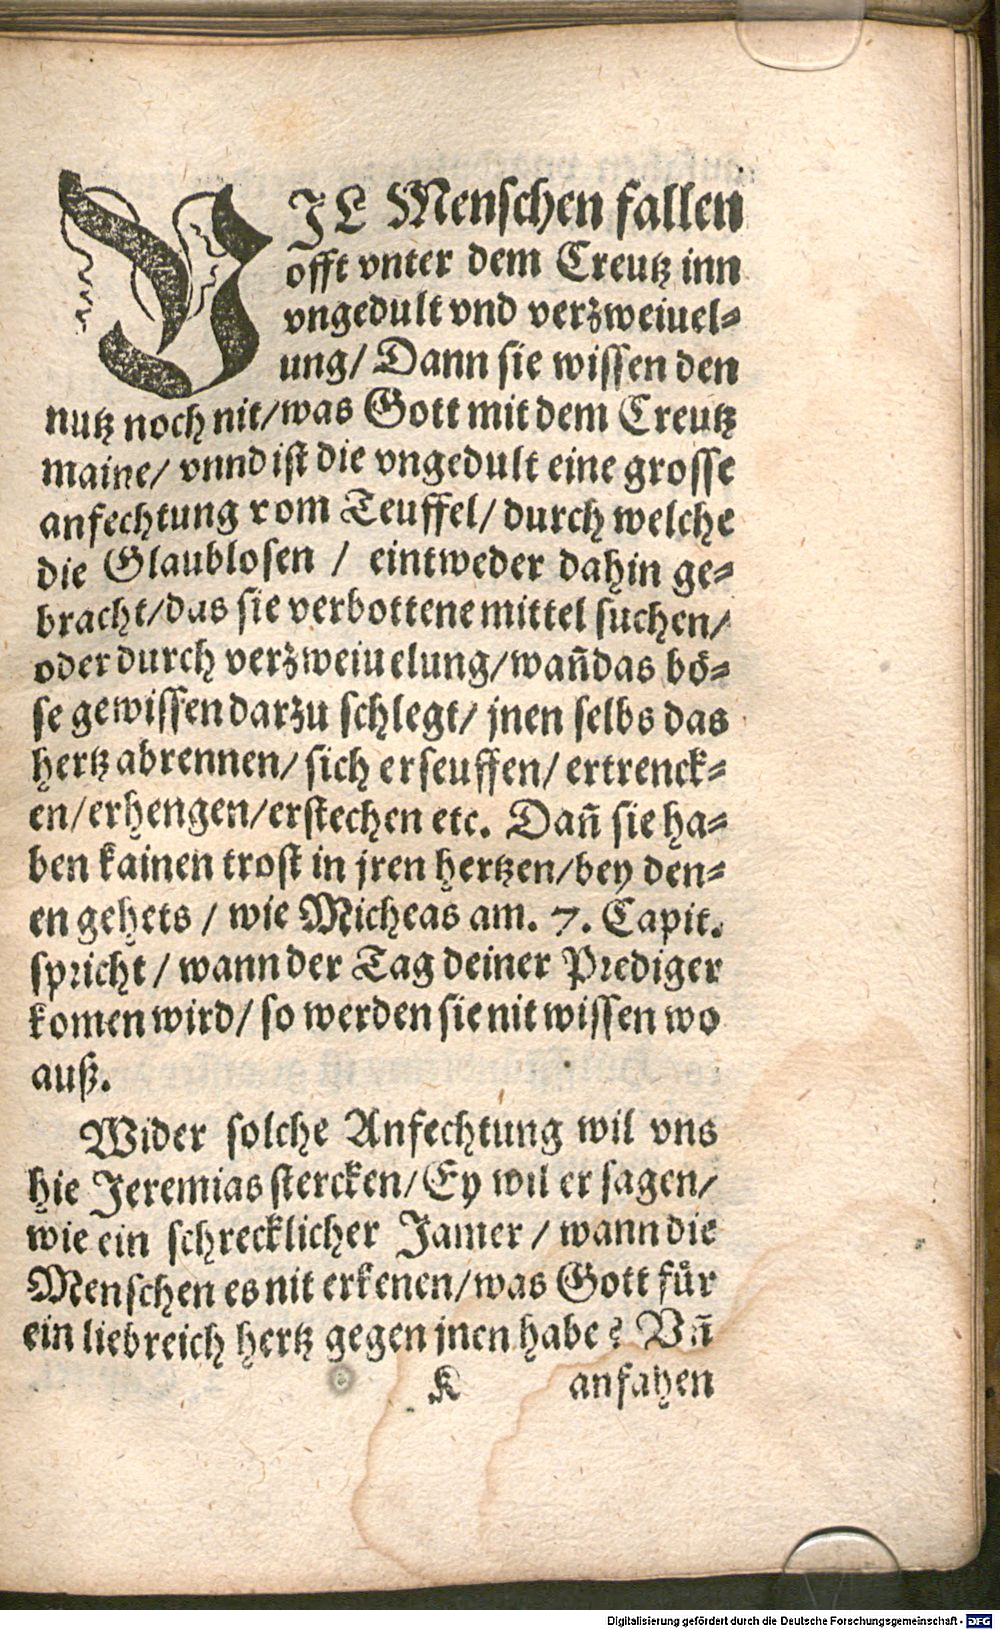 VJL Menschen fallen
offt vnter dem Creutz inn
vngedult vnd verzweiuel-
ung/ Dann sie wissen den
nutz noch nit/was Gott mit dem Creutz
maine/ vnnd ist die vngedult eine grosse
anfechtung vom Teuffel/ durch welche
die Glaublosen / eintweder dahin ge-
bracht/das sie verbottene mittel suchen/
oder durch verzweiuelung/wañ das bö-
se gewissen darzu schlegt/ jnen selbs das
hertz abrennen/ sich erseuffen/ ertrenck-
en/erhengen/erstechen etc. Dañ sie ha-
ben kainen trost in jren hertzen/bey den-
en gehets / wie Micheas am. 7. Capit.
spricht / wann der Tag deiner Prediger
komen wird/ so werden sie nit wissen wo
auß.
Wider solche Anfechtung wil vns
hie Jeremias stercken/ Ey wil er sagen/
wie ein schrecklicher Jamer / wann die
Menschen es nit erkenen/was Gott fůr
ein liebreich hertz gegen jnen habe? Vñ
K anfahen
Digitalisierung gefördert durch die Deutsche Forschungsgemeinschaft - DFG